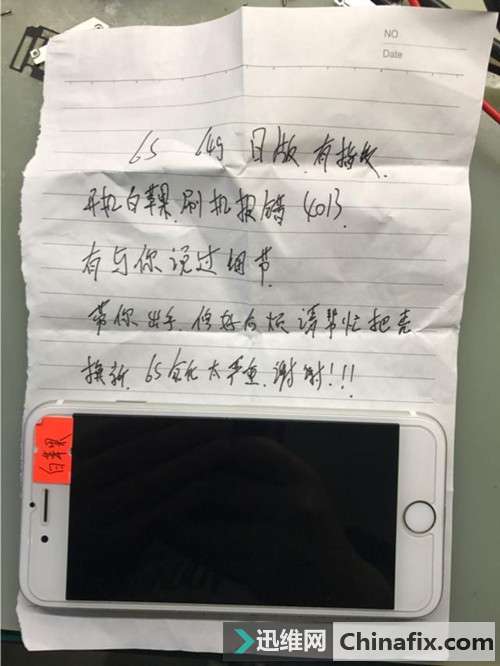 NO
Date
6S 64g 日版 有指纹
开机白苹果.刷机报错 4013
有与你说过细节
你出手.修好后烦请帮忙把壳
换新. 6S 太严重.谢谢!!!
白苹果
迅维网 Chinafix.com